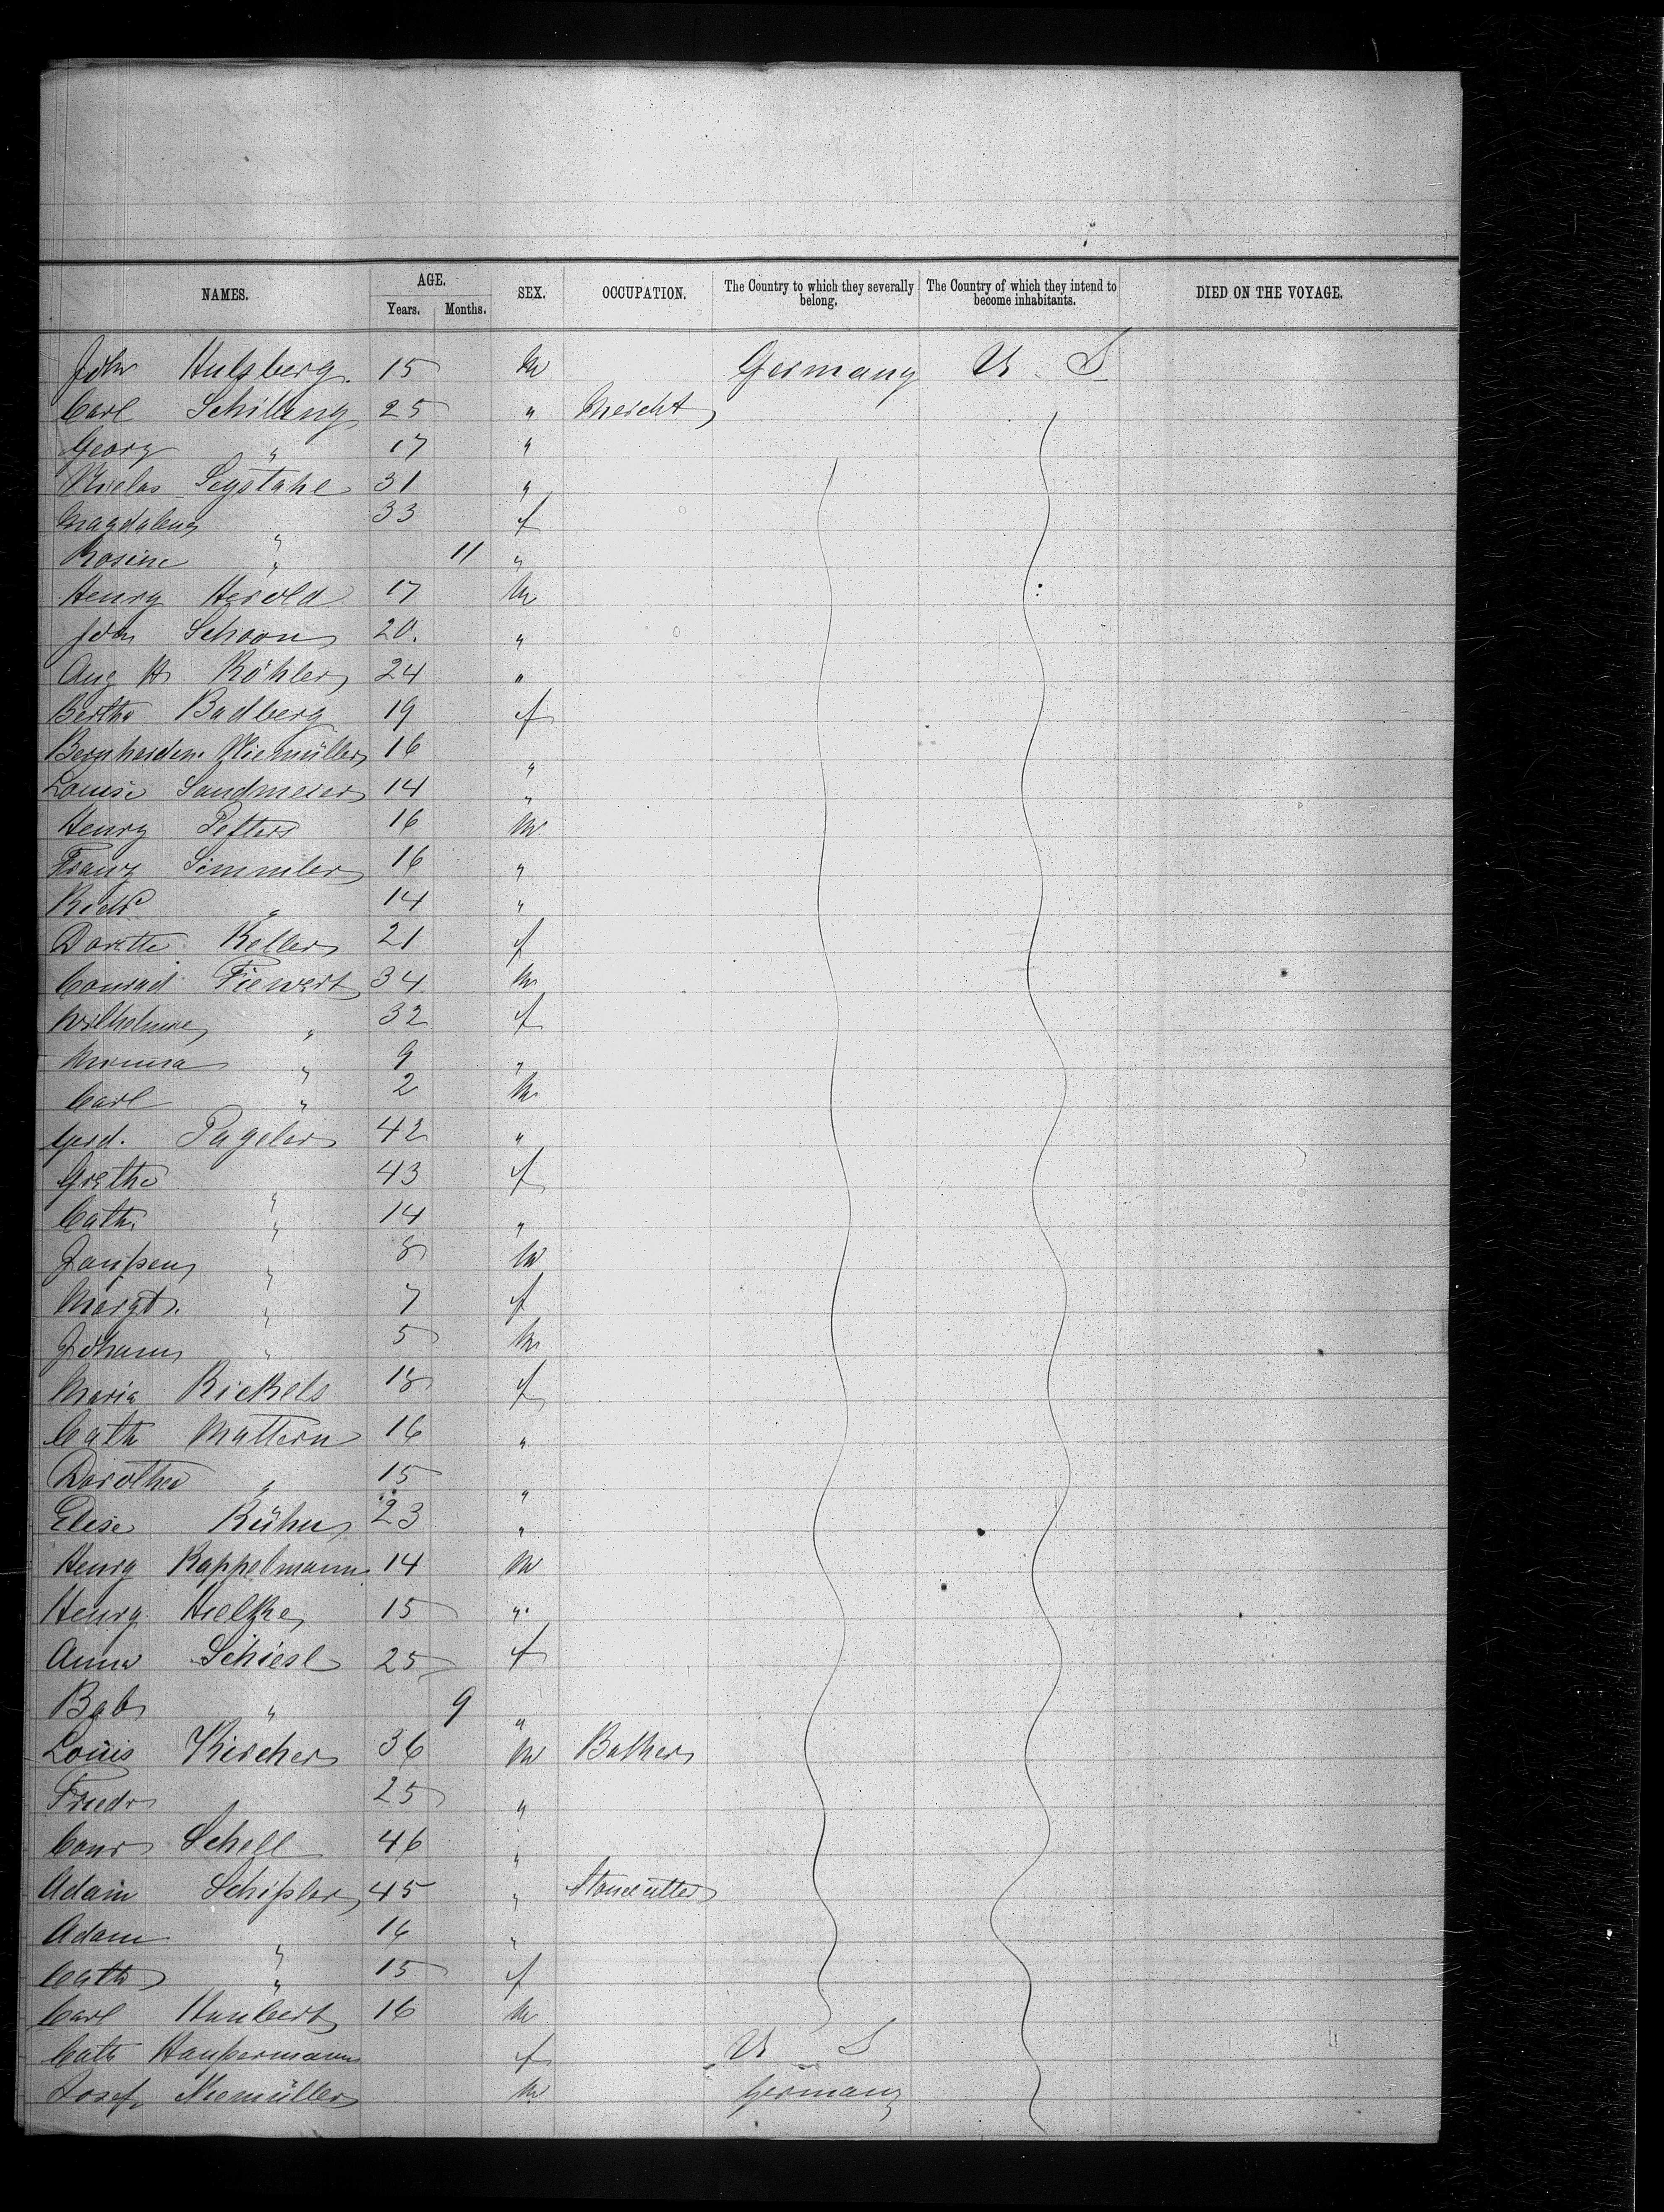 NAMES. AGE. SEX. OCCUPATION. The Country to which they severally belong. The Country of which they intend to become inhabitants. DIED ON THE VOYAGE.
Years. Months.
John Hulsberg. 15 M Germany U. S
Carl Schilling 25 " Mercht
Georg " 17 "
Seystahl 31 "
Magdalena " 33 f
Rosine " 11 "
Henry Herold 17 M
John Schoon 20. "
Aug H Köhler 24 "
Bertha Badberg 19 f
Niemüller 16 "
Louise Sandmeier 14 "
Henry Peters 16 M
Franz Simmler 16 "
Richd " 14 "
Dorette Keller 21 f
Conrad Fiewert 34 M
Wilhelmine " 32 f
Minna " 9 "
Carl " 2 M
Gerd. Pageler 42 "
Grethe " 43 f
Cath. " 14 "
Janssen " 8 M
Margt. " 7 f
Johann " 5 M
Maria Rickels 18 f
Cath Mattern 16 "
Dorothea " 15 "
Elise Kühn 23 "
Henry Kappelmann 14 M
Henry Hielke 15 "
Anna Schiesl 25 f
Bab " 9 "
Louis Kircher 36 M Bather
Friedr 25 "
Conr Schell 46 "
Adam Schissler 45 " Stonecutter
Adam " 16 "
Cath " 15 f
Carl Humbert 16 M
Cath Haussermann f U S
Josef Niemüller M Germany